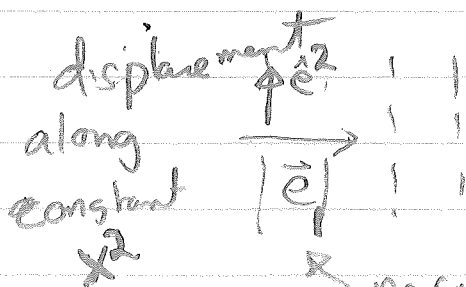 displacement ê²
along
constant |e⃗|
x²